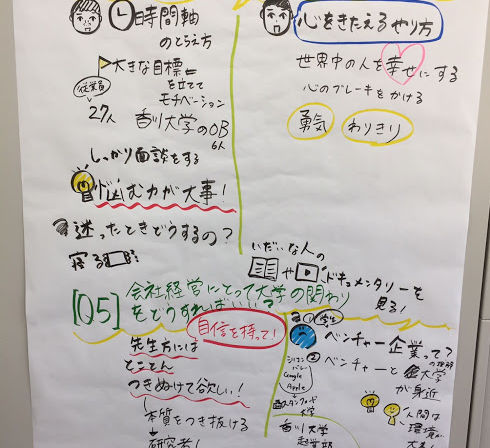 時間軸
のとらえ方
大きな目標
を立てて
モチベーション
従業員
27人
香川大学のOB
6人
しっかり面談をする
悩む力が大事!
迷ったときどうするの?
寝る
心をきたえるやり方
世界中の人を幸せにする
心のブレーキをかける
勇気
わりきり
いだいな人の
や
ドキュメンタリーを
見る!
[Q5]
会社経営にとって大学の関わり
をどうすればいい!?
自信を持って!
先生方には
とことん
つきぬけて欲しい!
本質をつき抜ける
研究者!
① 学生
ベンチャー企業って?
② ベンチャーと
大学
が身近
シリコン
バレー
Google
Apple
スタンフォード
大学
香川大学
起業部
人間は
環境が
大事!